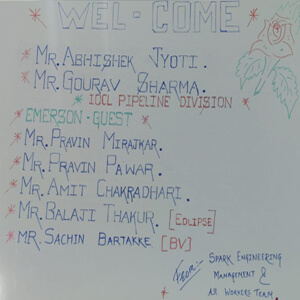 WEL-COME
* MR. ABHISHEK JYOTI.
* MR. GOURAV SHARMA.
* IOCL PIPELINE DIVISION
* EMERSON-GUEST
* MR. PRAVIN MIRAJKAR.
* MR. PRAVIN PAWAR.
* MR. AMIT CHAKRADHARI.
* MR. BALAJI THAKUR. [EDLIPSE]
* MR. SACHIN BARTAKKE [BV]
From:- SPARK ENGINEERING
MANAGEMENT &
All WORKERS TEAM